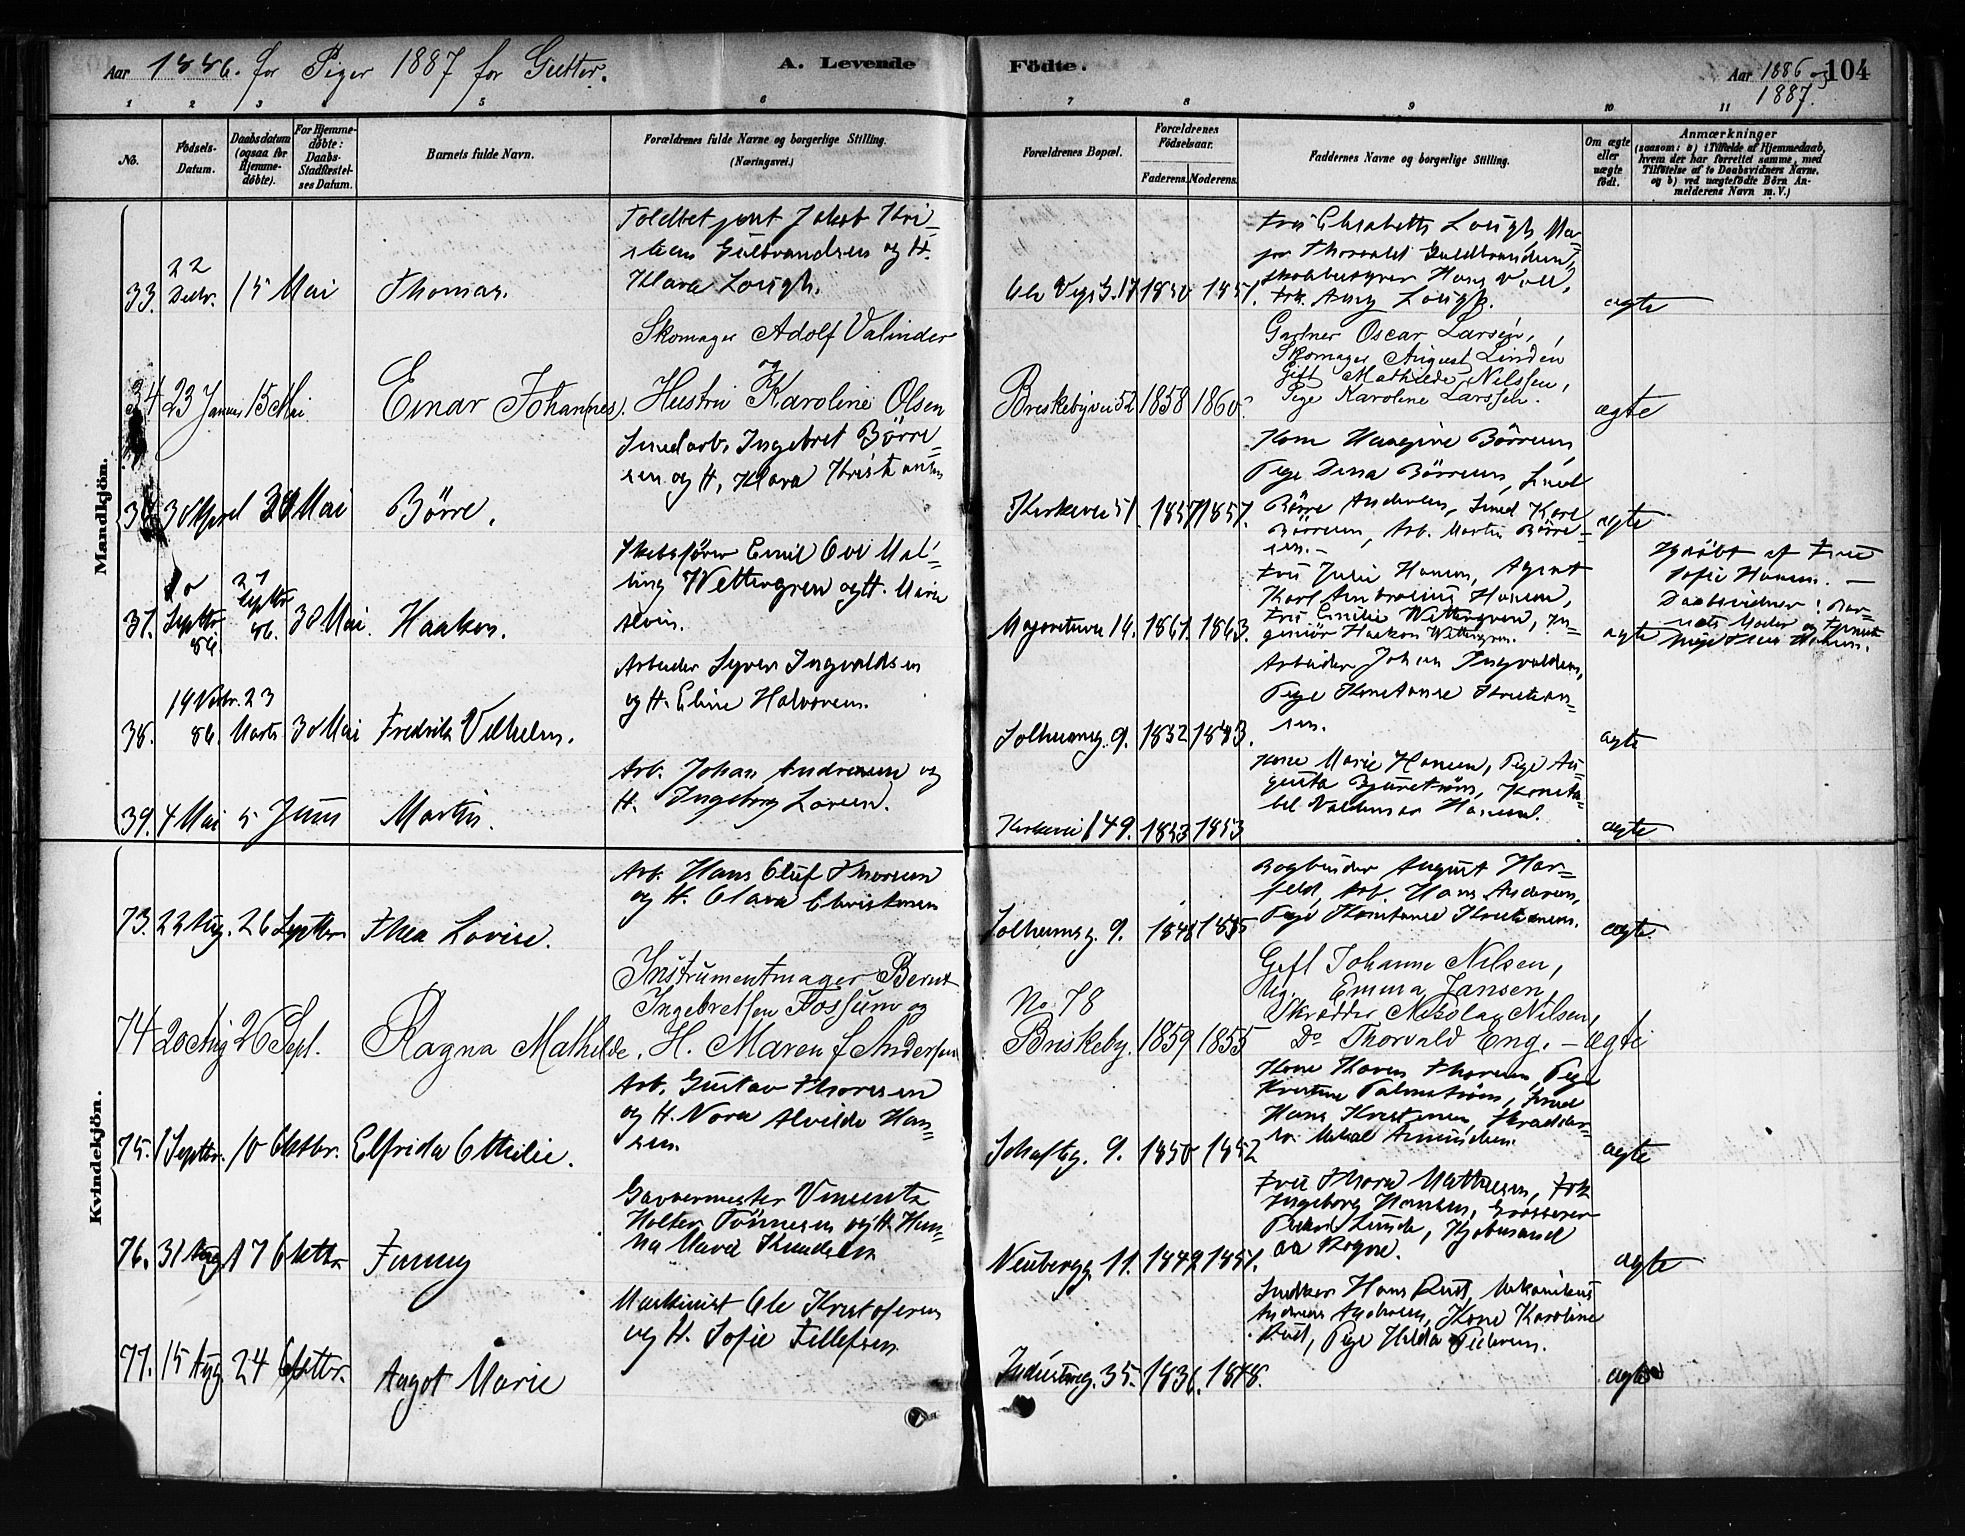 Aar 1886. for Piger 1887 for Gutter.
A. Levende Födte.
Aar 1886 og 1887.
104
1 2 3 4 5 6 7 8 9 10 11
No.
Födsels-
Datum.
Daabsdatum
(ogsaa for
Hjemme-
döbte).
For Hjemme-
döbte:
Daabs-
Stadfæstel-
ses Datum.
Barnets fulde Navn.
Forældrenes fulde Navne og borgerlige Stilling.
(Næringsvei.)
Forældrenes Bopæl.
Forældrenes
Födselsaar.
Faderens. Moderens.
Faddernes Navne og borgerlige Stilling.
Om ægte
eller
uægte
födt.
Anmærkninger
(saasom: a) i Tilfælde af Hjemmedaab,
hvem der har forrettet samme, med
Tilföielse af to Daabsvidners Navne.
og b) ved uægtefödte Börn An-
melderens Navn m. V.)
Mandkjön.
33. 22 Decbr. 15 Mai Thomas.
Jakob Kri-
stian Gulbrandsen og H.
Klara Lough.
17 1850 1851.
Fru Elisabeth Lough, Ma-
jor Thorvald Guldbrandsen,
Skolebestyrer Hans Voll,
Frk. Amy Lough.
ægte
34 23 Januar 15 Mai Einar Johannes.
Skomager Adolf Valinder
Hustru Karoline Olsen
Briskebyvei 52 1858 1860.
Gartner Oscar Larsen,
Skomager August Lindén
Gift Mathilde Nilssen,
Pige Karoline Larssen.
ægte
30 April 30 Mai Börre.
Smedarb. Ingebret Börre-
sen og H. Klara Kristiansen
Kirkevei 51. 1857 1857.
Kone Haagine Börresen,
Pige Dina Börresen, Smed
Börre Andersen, Smed Karl
Börresen, Arb. Martin Börre-
sen.-
ægte
37. Septbr. 86 Septbr. 86. 30 Mai. Haakon.
Skibsförer Emil Ove Mal-
ling Wettergren og H. Marie
Alvin.
Majorstuvei 14. 1861. 1863.
Fru Julie Hansen, Agent
Karl Ambrosius Hansen,
Fru Emilie Wettergren, In-
geniör Haakon Wettergren.
ægte
Hjdöbt af Frue
Sofie Hansen. -
Daabsvidner: Bar-
nets Moder og Tjeneste-
pige
38. 19 Novbr. 86. 23 Marts 30 Mai Fredrik Vilhelm.
Arbeider Syver Ingvaldsen
og H. Eline Halvorsen.
Solheimsg. 9. 1852
Arbeider Johan Ingvaldsen,
Pige Konstanse Kristian-
sen.
ægte
39. 4 Mai 5 Juni Martin.
Arb. Johan Andresen og
H. Ingeborg Larsen.
Kirkevei 49. 1853 1853
Kone Marie Hansen, Pige Au-
gusta Bjurström, Konsta-
bel Valdemar Hansen.
ægte
Kvindekjön.
73. 22 Aug. 26 Septbr. Thea Lovise.
Arb. Hans Oluf Thoresen
og H. Clara Christensen
Solheimsg. 9.
Bogbinder August Har-
feld, Arb. Hans Andersen,
Pige Konstanse Kristiansen.
ægte.
74 20 Aug 26 Sept. Ragna Mathilde.
Instrumentmager Bernt
Ingebretsen Fossum og
H. Maren f Andersen
No. 78
Briskeby. 1859 1855
Gift Johanne Nilsen,
Ug. Emma Jansen,
Skrædder Nikolay Nilsen,
Do Thorvald Eng. -
ægte
75. 1 Septbr. 10 Oktbr. Elfrida Othilie.
Arb. Gustav Thoresen
og H. Nora Alvilde Han-
sen.
Schafteg. 9. 1850 1852
Kone Karen Thoresen, Pige
Kristine Palmström, Smed
Hans Kristensen, Skrædder-
sv. Mikal Amundsen.
ægte
76. 31 Aug 17 Oktbr. Fanny
Garvermester Vincentz
Holter Tönnesen og H. Han-
na Maria Knudsen
Neubergg. 11. 1849 1851.
Fru Thora Mathiesen, Frk
Ingeborg Hansen, Grosserer
Peder Lunde, Kjöbmand
Aa Rogne.
ægte
77. 15 Aug 24 Oktbr. Aagot Marie
Maskinist Ole Kristofersen
og H. Sofie Tellefsen
Industrig. 35. 1836. 1848.
Snedker Hans Rud, Mekanikus
Andreas Andresen, Kone Karoline
Rud, Pige Hilda Pedersen.
ægte